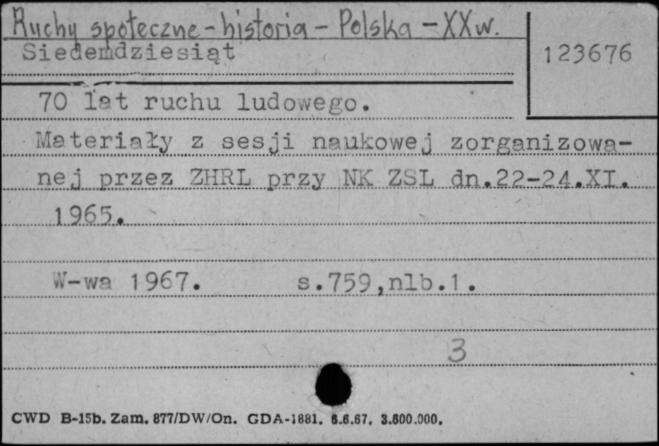 Ruchy społeczne - historia - Polska - XX w.
Siedemdziesiąt
123676
70 lat ruchu ludowego.
Materiały z sesji naukowej zorganizowa-
nej przez ZHRL przy NK ZSL dn.22-24.XI.
1965.
W-wa 1967. s.759,nlb.1.
3
CWD B-15b. Zam. 877/DW/On. GDA-1881. 6.6.67. 3.600.000.